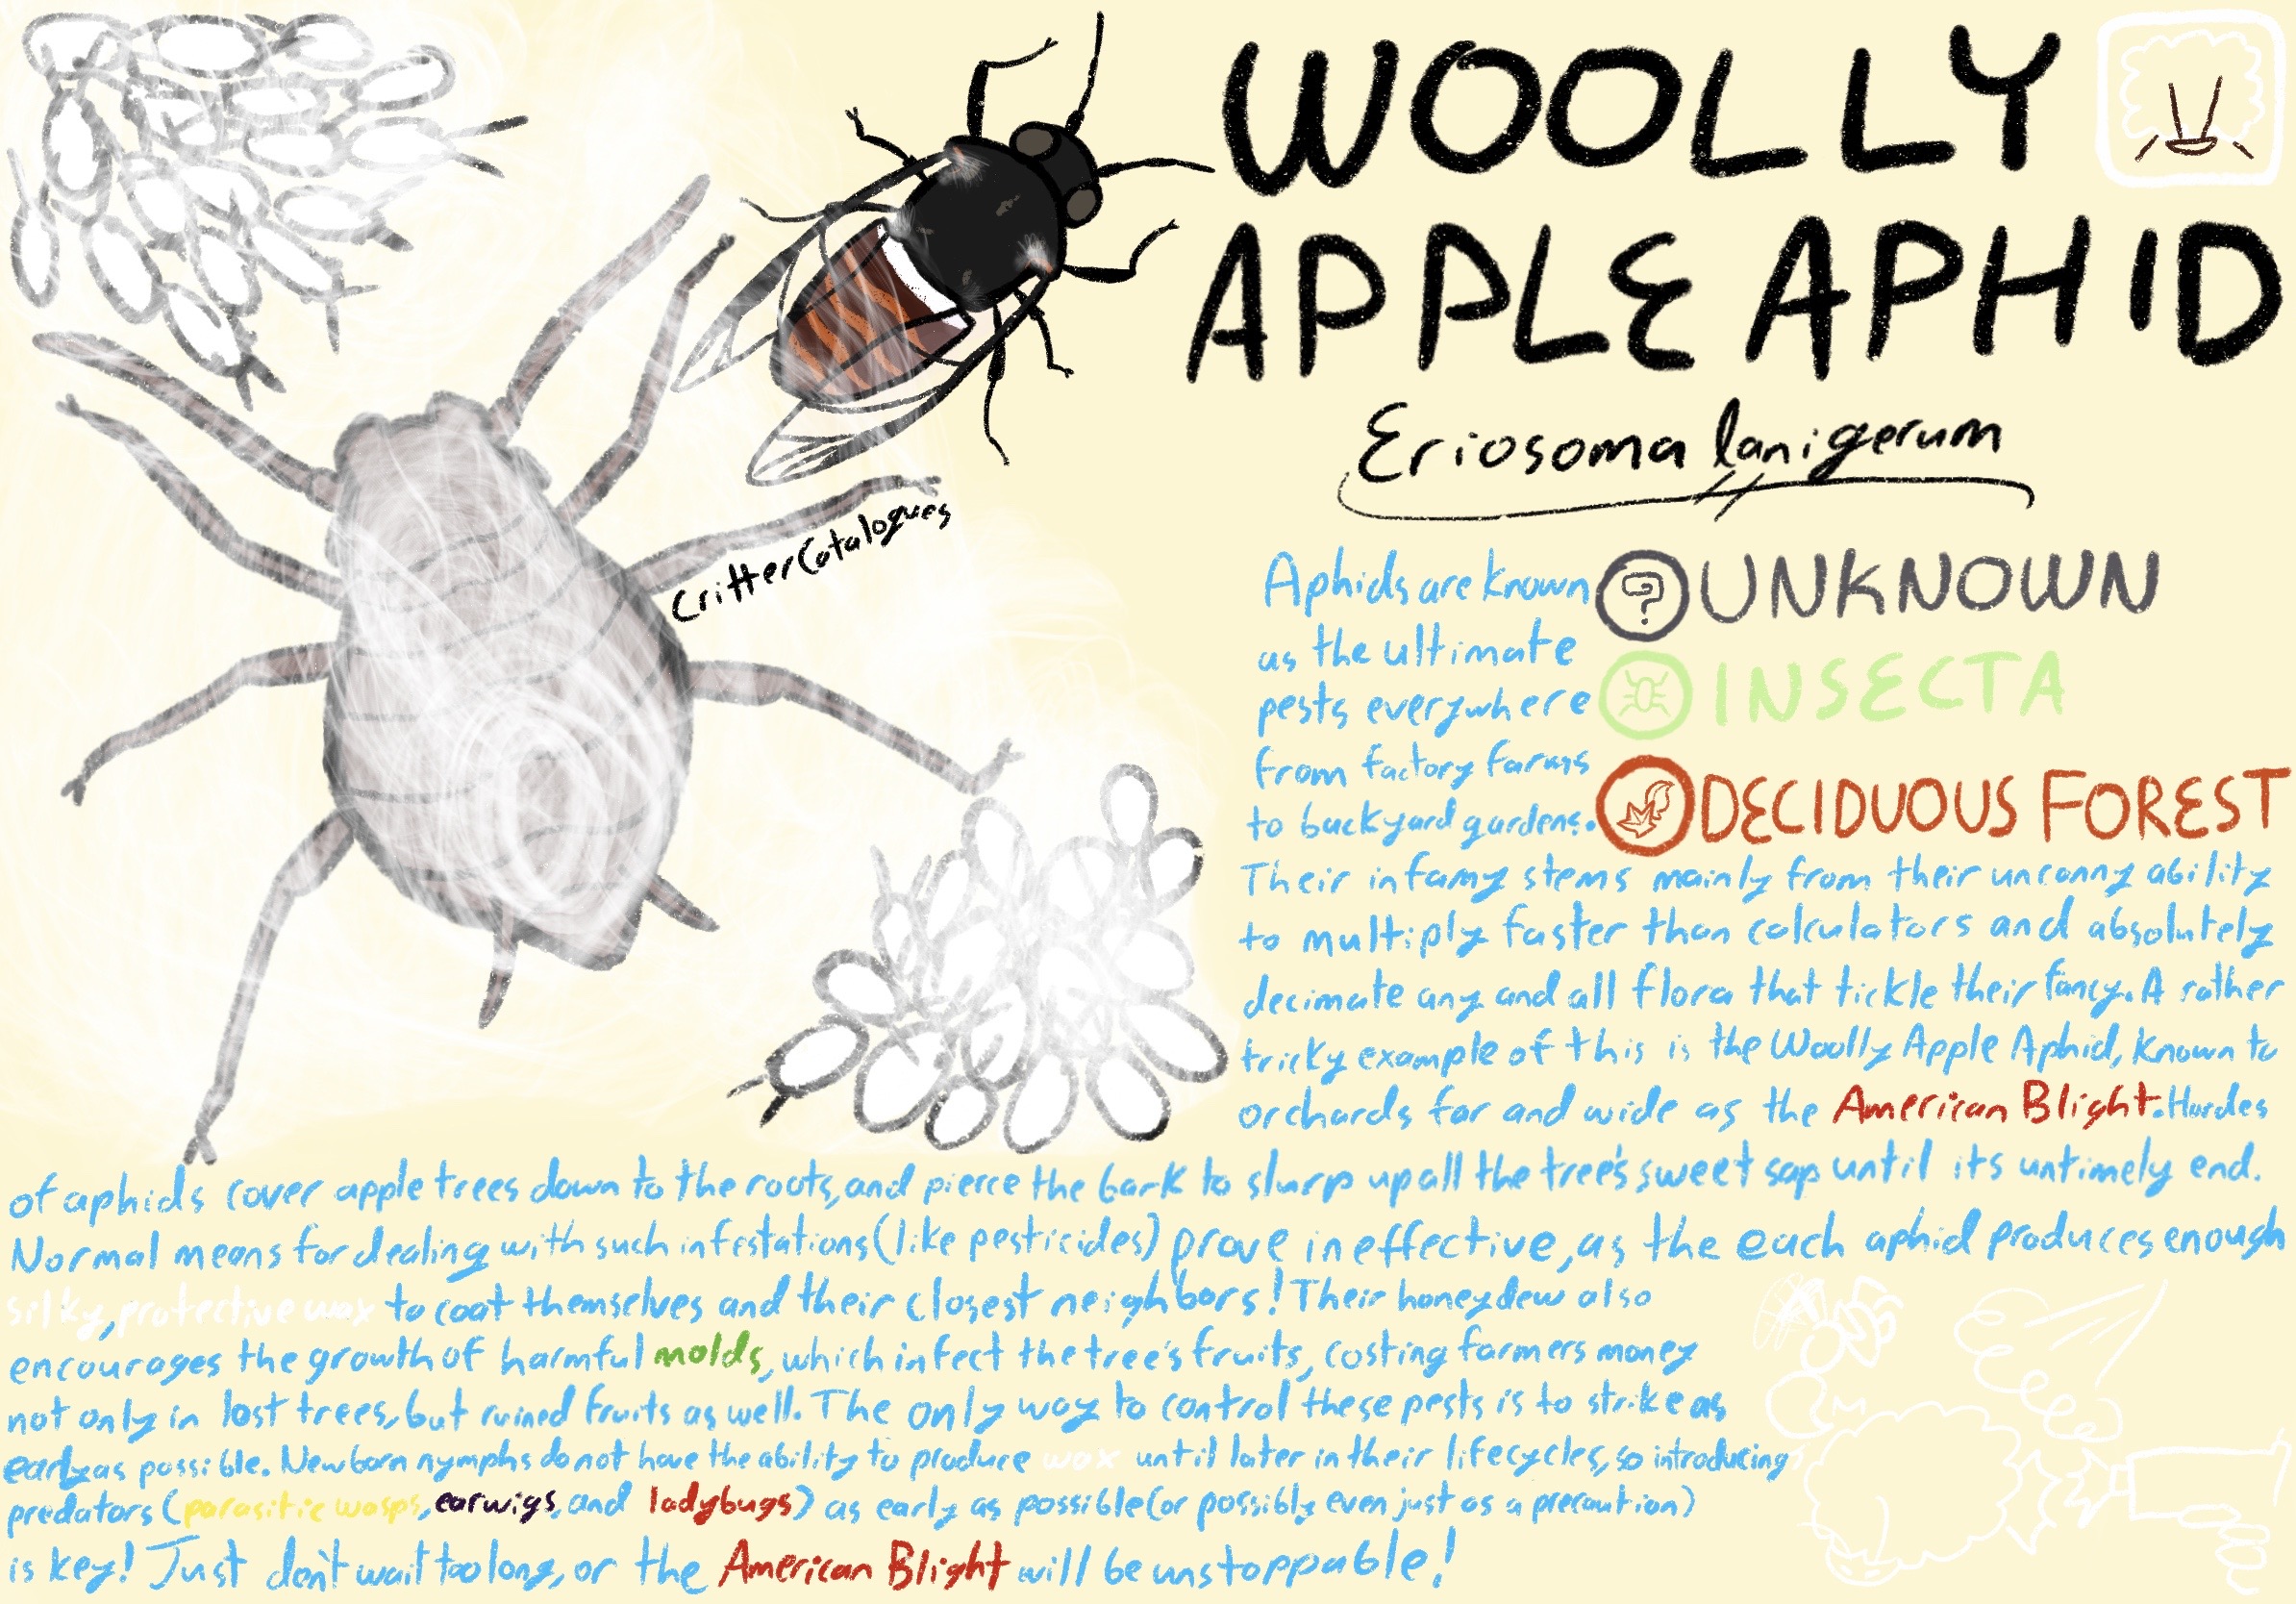 WOOLLY
APPLE APHID
Eriosoma lanigerum
CritterCatalogues
? UNKNOWN
INSECTA
DECIDUOUS FOREST
Aphids are known
as the ultimate
pests everywhere
from factory farms
to backyard gardens.
Their infamy stems mainly from their uncanny ability
to multiply faster than calculators and absolutely
decimate any and all flora that tickle their fancy. A rather
tricky example of this is the Woolly Apple Aphid, known to
orchards far and wide as the American Blight. Hordes
of aphids cover apple trees down to the roots, and pierce the bark to slurp up all the tree's sweet sap until its untimely end.
Normal means for dealing with such infestations (like pesticides) prove ineffective, as the each aphid produces enough
silky, protective wax to coat themselves and their closest neighbors! Their honeydew also
encourages the growth of harmful molds, which infect the tree's fruits, costing farmers money
not only in lost trees, but ruined fruits as well. The only way to control these pests is to strike as
early as possible. Newborn nymphs do not have the ability to produce wax until later in their lifecycles, so introducing
predators (parasitic wasps, earwigs, and ladybugs) as early as possible (or possibly even just as a precaution)
is key! Just don't wait too long, or the American Blight will be unstoppable!